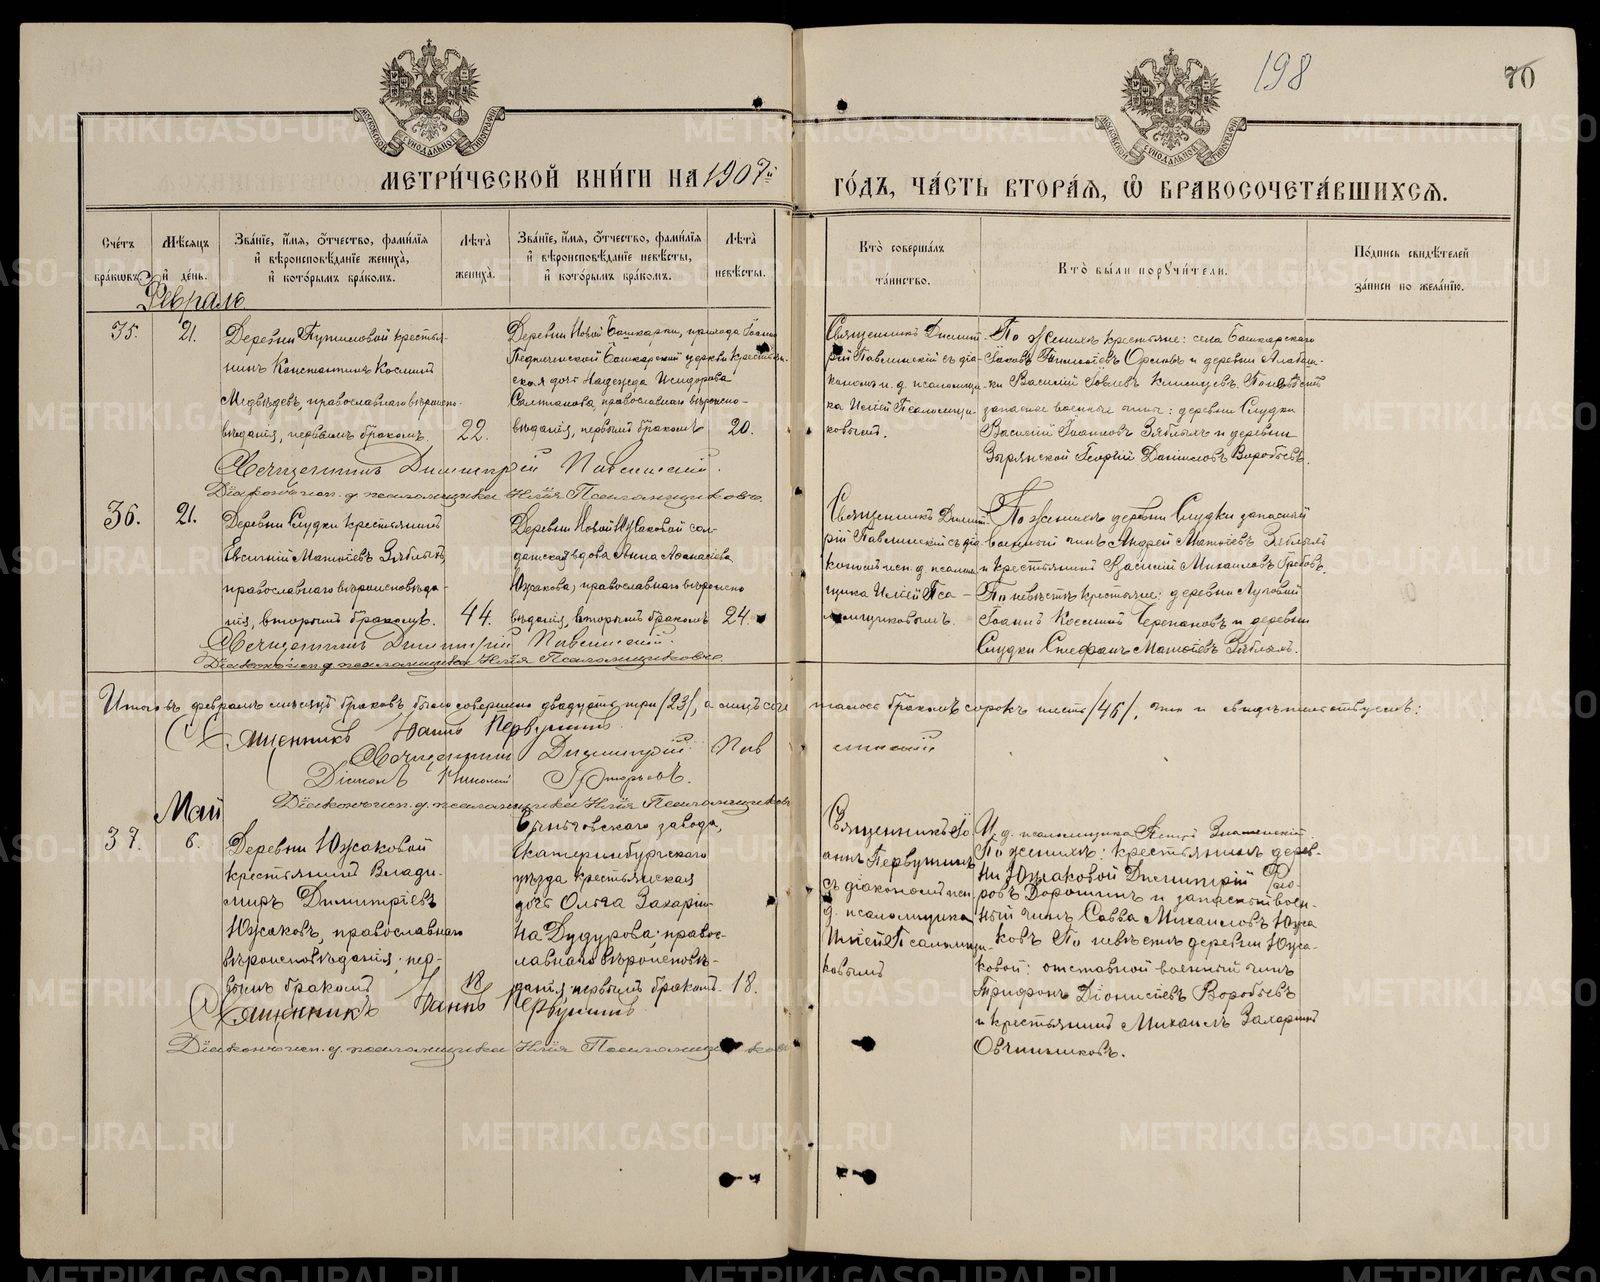 198
70
МЕТРИ́ЧЕСКОЙ КНИ́ГИ НА 1907й
ГО́ДЪ, ЧА́СТЬ ВТОРА́Я, Ѡ БРАКОСОЧЕТА́ВШИХСѦ.
Сче́тъ бра́кѡвъ.
Мѣ́сяцъ и де́нь.
Зва́нїе, и́мя, о́тчество, фами́лїя и вѣроисповѣ́данїе жениха̀, и кото́рымъ бра́комъ.
Лѣ́та жениха̀.
Зва́нїе, и́мя, о́тчество, фами́лїя и вѣроисповѣ́данїе невѣ́сты, и кото́рымъ бра́комъ.
Лѣ́та невѣ́сты.
Кто̀ соверша́лъ та́инство.
Кто̀ бы́ли порꙋчи́тели.
По́дпись свидѣ́телей за́писи по жела́нїю.
Февраль
35.
21.
Деревни
крестья-
нинъ Константинъ Косминъ
Медвѣдевъ, православнаго вѣроиспо-
вѣданія, первымъ бракомъ.
22.
Деревни Новой Башкарки, прихода Іоанно
Предтеческой Башкарской церкви крестьян-
ская дочь Надежда Исидорова
Салтанова, православнаго вѣроиспо-
вѣданія, первымъ бракомъ
20.
Священникъ Димит-
рій Павлинскій съ діа-
кономъ и. д. псаломщи-
ка Иліей Псаломщи-
ковымъ.
По женихѣ крестьяне: села Башкарскаго
Іаковъ Тимоѳеевъ Орловъ и деревни Алабаш-
ки Василій Іовлевъ
По невѣстѣ
запасные военные чины: деревни Слудки
Василій Іоанновъ Зяблыхъ и деревни
Зырянской Георгій Даніиловъ Воробьевъ.
Священникъ Димитрій Павлинскій.
Діаконъ исп. д. псаломщика Илія Псаломщиковъ.
36.
21.
Деревни Слудки крестьянинъ
Евсигній Матѳіевъ Зяблыхъ,
православнаго вѣроисповѣда-
нія, вторымъ бракомъ.
44.
Деревни Новой Южаковой сол-
датская вдова Анна Аѳанасіева
Южакова, православнаго вѣроиспо
вѣданія, вторымъ бракомъ
24.
Священникъ Димит-
рій Павлинскій съ діа-
кономъ исп. д. псалом-
щика Иліей Пса-
ломщиковымъ.
По женихѣ деревни Слудки запасный
военный чинъ Андрей Матѳіевъ Зяблыхъ
и крестьянинъ Василій Михаиловъ Гребовъ.
По невѣстѣ крестьяне: деревни Луговой
Іоаннъ Косминъ Черепановъ и деревни
Слудки Стефанъ Матѳіевъ Зяблыхъ.
Священникъ Димитрій Павлинскій.
Діаконъ исп. д. псаломщика Илія Псаломщиковъ.
Итого въ февралѣ мѣсяцѣ браковъ было совершено двадцать три /23/, а лицъ соче талось бракомъ сорокъ шесть /46/, что и свидѣтельствуемъ:
Священникъ Іоаннъ Первушинъ
Священникъ Димитрій Павлинскій
Діаконъ Николай
Діаконъ исп. д. псаломщика Илія Псаломщиковъ
Май
37.
6.
Деревни Южаковой
крестьянинъ Влади-
миръ Димитріевъ
Южаковъ, православнаго
вѣроисповѣданія, пер-
вымъ бракомъ
18
Сылвовскаго завода,
Екатеринбургскаго
уѣзда крестьянская
дочь Ольга Захаріи-
на Дудурова, правос-
лавнаго вѣроисповѣ-
данія первымъ бракомъ.
18.
Священникъ Іо-
аннъ Первушинъ
съ діакономъ исп.
д. псаломщика
Иліей Псаломщи-
ковымъ
И. д. псаломщика Петръ Знаменскій
По женихѣ: крестьянинъ дерев-
ни Южаковой Димитрій Ѳео-
ровъ Дорошинъ и запасный воен-
ный чинъ Савва Михаиловъ Южа
ковъ По невѣстѣ деревни Южа-
ковой: отставной военный чинъ
Трифонъ Діонисіевъ Воробьевъ
и крестьянинъ Михаилъ Захаринъ
Овчинниковъ.
Священникъ Іоаннъ Первушинъ
Діаконъ исп. д. псаломщика Илія Псаломщиковъ